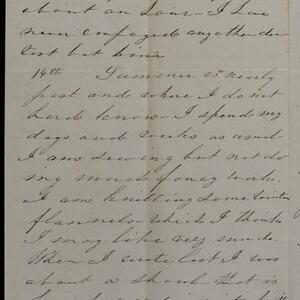 about an hour – I have
never employed any other den
tist but him
14th Summer is nearly
past and where I do not
hard know – I spend my
days and weeks as usual
I am sewing but not do
ing much fancy work.
I am knitting some winter
flannels – which I think
I may like very much.
When I wrote last I was
about a shawl – that is